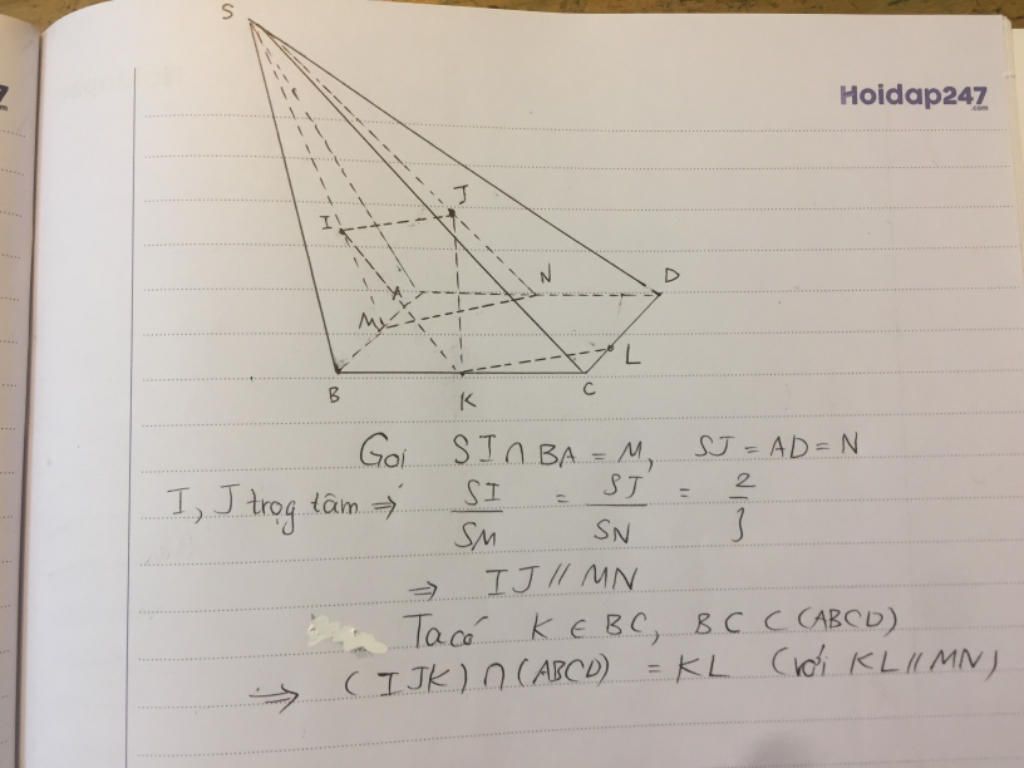 S
7
Hoidap247
.com
J
I
N
D
A
M
L
B
K
C
Gọi SI ∩ BA = M, SJ = AD = N
I, J trọg tâm ⇒ SI/SM = SJ/SN = 2/3
⇒ IJ // MN
Ta có K ∈ BC, BC ⊂ (ABCD)
⇒ (IJK) ∩ (ABCD) = KL (với KL // MN)